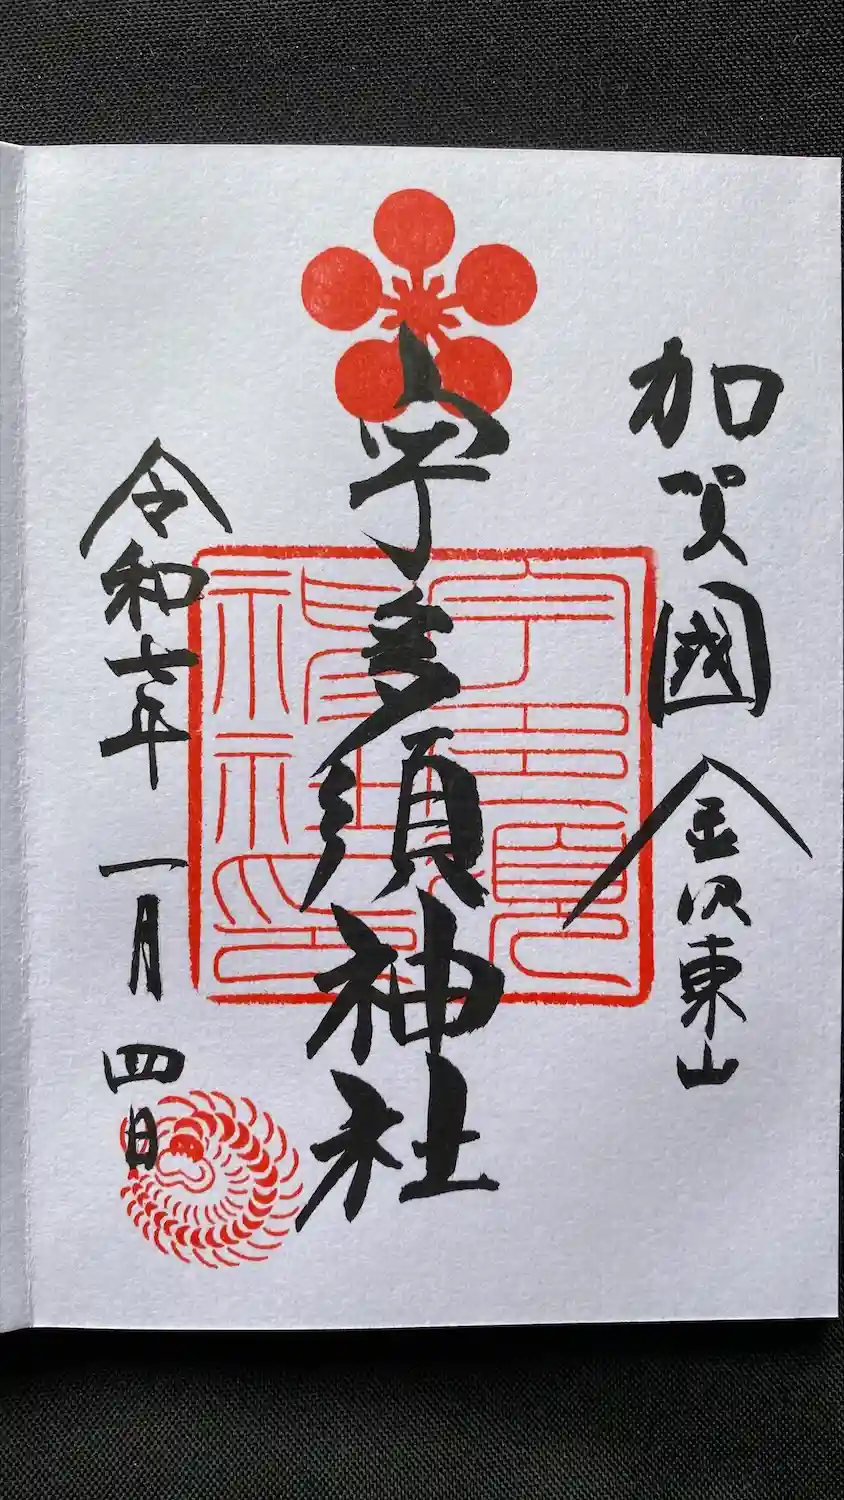 加賀國 金沢東山
宇多須神社
令和七年 一月 四日
宇多須
神社
社印